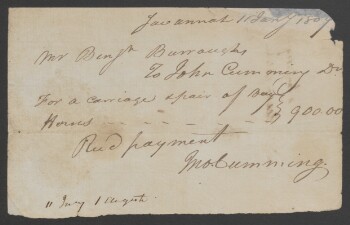 Savannah 11 Jany 1807
Mr Benjn Burroughs
To John Cumming Dr
For a carriage & pair of Bay
Horses - - - - $900.00
Recd payment
Jno Cumming
11 Jany